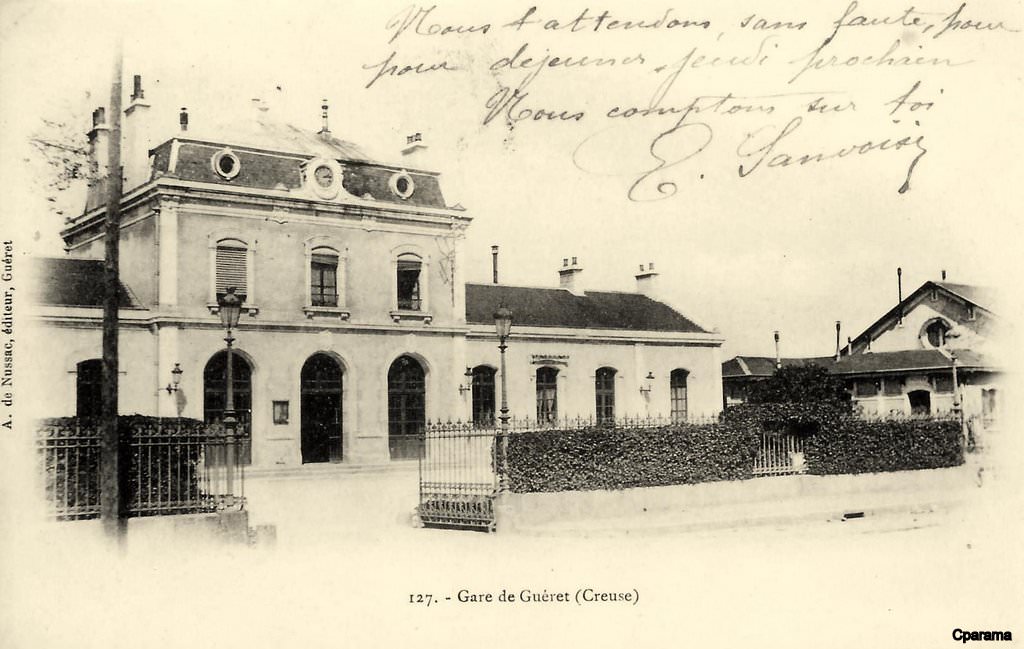 Nous t'attendons, sans faute, pour
pour déjeuner, jeudi prochain
Nous comptons sur toi
E. Sanvoisin
A. de Nussac, éditeur, Guéret
127. - Gare de Guéret (Creuse)
Cparama